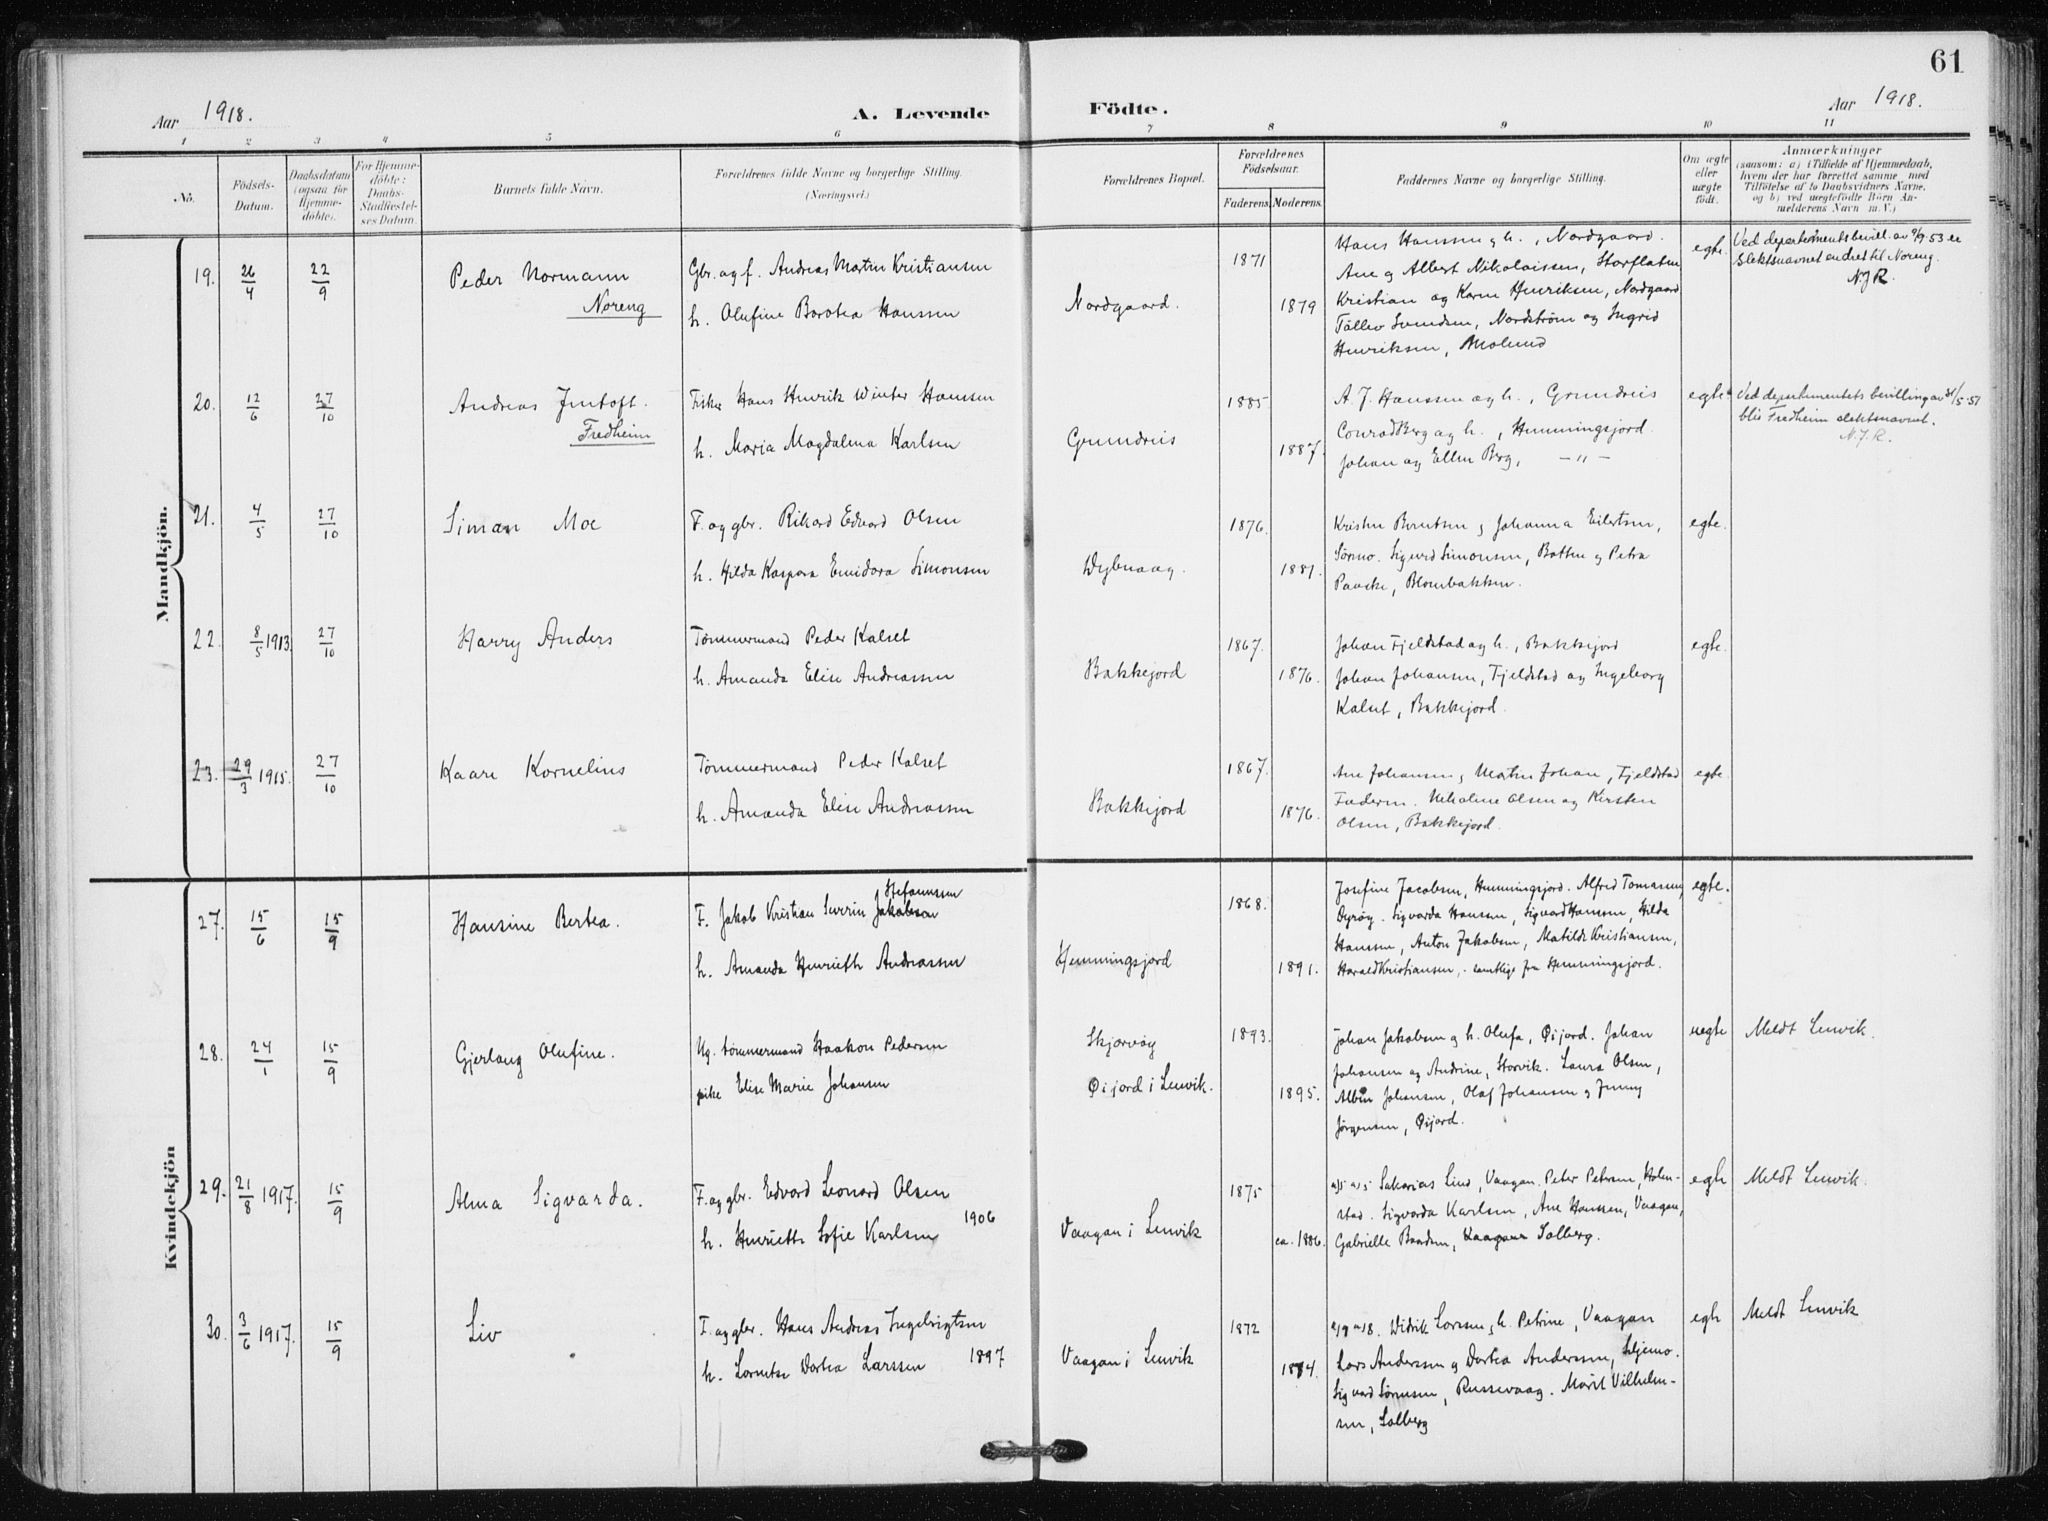 61
Aar 1918.
A. Levende Födte.
Aar 1918.
1 2 3 4 5 6 7 8 9 10 11
Nö.
Födsels-
Datum.
Daabsdatum
(ogsaa for
Hjemme-
döbte).
For Hjemme-
döbte:
Daabs-
Stadfæstel-
ses Datum.
Barnets fulde Navn.
Forældrenes fulde Navne og borgerlige Stilling.
(Næringsvei.)
Forældrenes Bopæl.
Forældrenes
Födselsaar.
Faderens. Moderens.
Faddernes Navne og borgerlige Stilling.
Om ægte
eller
uægte
födt.
Anmærkninger
(saasom: a) i Tilfælde af Hjemmedaab,
hvem der har forrettet samme, med
Tilföielse af to Daabsvidners Navne,
og b) ved uægtefödte Börn An-
melderens Navn m. V.)
Mandkjön.
19. 26/4 22/9 Peder Normann
Noreng
Gbr. og f. Andreas Martin Kristiansen
h. Olufine Barotea Hanssen
Nordgaard.
1871
1879
Hans Hanssen og h., Nordgaard.
Ane og Albert Nikolaissen, Storflaten
Kristian og Karen Henriksen, Nordgaard
Tollev Svendsen, Nordstrøm og Ingrid
Henriksen, Molund
egte.
Ved departementsbevill. av 9/9.53 er
slektsnavnet endret til Noreng.
N.J.R.
20. 12/6 27/10 Andreas Jentoft.
Fredheim
Fisker Hans Henrik Winter Hanssen
h. Maria Magdalena Karlsen
Grundreis
1885
1887.
A. J. Hanssen og h., Grundreis
Conrad Berg og h., Hemmingsjord.
Johan og Ellen Berg, — " —
egte.
Ved departementets bevilling av 31/5.51
blir Fredheim slektsnavnet.
N.J.R.
21. 4/5 27/10 Siman Moe
F. og gbr. Rikard Edvard Olsen
h. Hilda Kaspara Emidora Simonsen
1876.
1881.
Kristen Berntsen og Johanna Eilertsen,
Sørmo. Sigurd Simonsen, Botten og Petra
Paaske, Blombakken.
egte.
22. 8/5 1913. 27/10 Harry Anders
Tømmermand Peder Kalset
h. Amanda Elise Andreassen
Bakkejord
1867.
1876.
Johan Fjeldstad og h., Bakkejord
Johan Johansen, Fjeldstad og Ingeborg
Kalset, Bakkejord.
egte.
23. 29/3 1915. 27/10 Kaare Kornelius
Tømmermand Peder Kalset
h. Amanda Elise Andreassen
Bakkejord
1867.
1876.
Ane Johansen, Martin Johan, Fjeldstad
Faderen. Olsen og Kirsten
Olsen, Bakkejord.
egte
Kvindekjön
27. 15/6 15/9 Hansine Bertea.
Stefanussen
F. Jakob Kristian Severin Jakobsen
h. Amanda Henriette Andreassen
Hemmingsjord
1868.
1891.
Josefine Jacobsen, Hemmingsjord. Alfred Tomassen,
Dyrøy. Sigvarda Hanssen, Sigvard Hanssen, Hilda
Hanssen, Anton Jakobsen, Matilde Kristiansen,
Harald Kristiansen, - samtlige fra Hemmingsjord.
egte.
28. 24/1 15/9 Gjerlaug Olufine.
Ug. tømmermand Haakon Pedersen
pike Elise Marie Johansen
Skjervøy
Øijord i Lenvik.
1893.
1895.
Johan Jakobsen og h. Olufa, Øijord. Johan
Johansen og Andrine, Storvik. Laura Olsen,
Johansen, Olaf Johansen og Jenny
Jørgensen, Øijord.
uegte
Meldt Lenvik.
29. 21/8 1917. 15/9 Alma Sigvarda.
F. og gbr. Edvard Leonard Olsen
h. Henriette Sofie Karlsen 1906
Vaagan i Lenvik
1875
ca. 1886.
Sakarias Lind, Vaagan. Peter Petersen, Holm-
stad. Sigvarda Karlsen, Ane Hanssen, Vaagan,
Gabrielle Bendsen, Vaagan Solberg.
egte
Meldt Lenvik.
30. 3/6 1917. 15/9 Liv
F. og gbr. Hans Andreas Ingebrigtsen
h. Lorentse Dortea Larssen 1897
Vaagan i Lenvik
1872
1874.
Widrik Lorssen og h. Petrine, Vaagan
Lars Anderssen og Dortea Anderssen,
Sigvard Sørensen, Russevaag. Marit Vilhelm-
sen, Solberg
egte
Meldt Lenvik